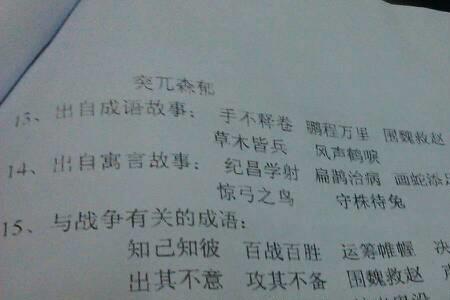 突兀森郁
13、出自成语故事：手不释卷 鹏程万里 围魏救赵
草木皆兵 风声鹤唳
14、出自寓言故事：纪昌学射 扁鹊治病 画蛇添足
惊弓之鸟 守株待兔
15、与战争有关的成语：
知己知彼 百战百胜 运筹帷幄 决
出其不意 攻其不备 围魏救赵 声